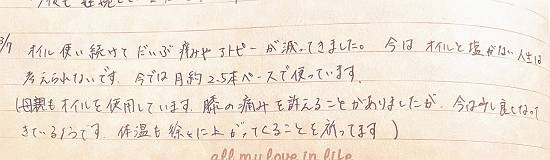 3/7
オイル使い続けてだいぶ痛みやアトピーが減ってきました。 今はオイルと塩がない人生は
考えられないです。今では月約2.5本ペースで使っています。
(母親もオイルを使用しています。膝の痛みを訴えることがありましたが、今は少し良くなって
きているようです。体温も徐々に上がってくることを祈ってます)
all my love in life